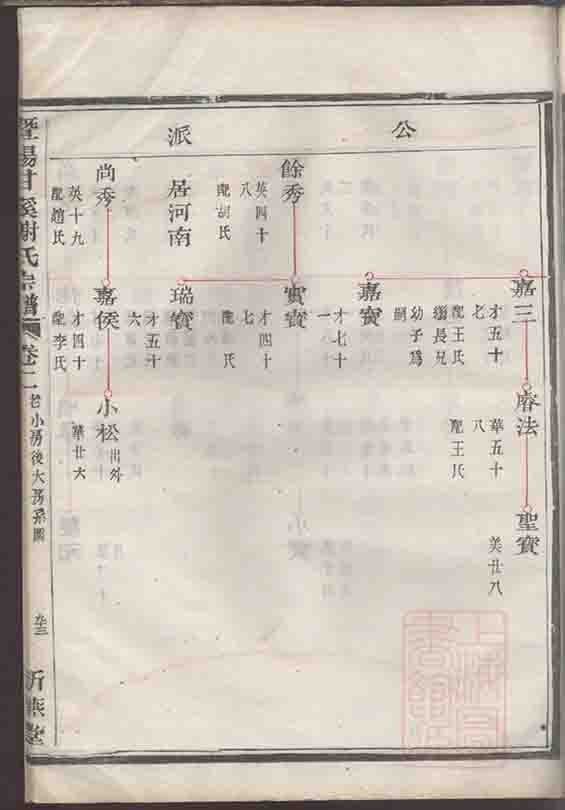 公派
嘉三
才五十
七
配王氏
繼長兄
幼子爲
嗣
睿法
華五十
八
配王氏
聖寶
美廿八
嘉寶
才七十
一
餘秀
英四十
八
配胡氏
實寶
才四十
七
配 氏
居河南
瑞寶
才五十
六
尚秀
英十九
配趙氏
嘉侯
才四十
配李氏
小松
出外
華廿六
暨陽甘溪謝氏宗譜
卷二
老小房後大房系圖